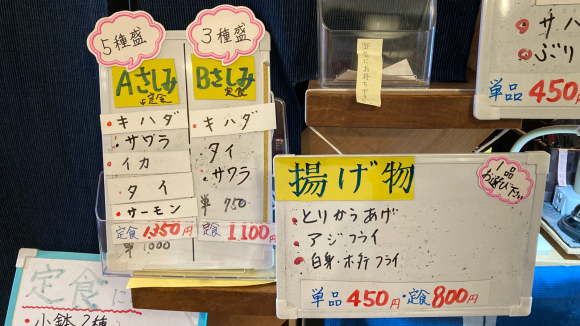 5種盛
Aさしみ
定食
・キハダ
・サワラ
・イカ
・タイ
・サーモン
定食 1,350円
単 1,000
3種盛
Bさしみ
定食
・キハダ
タイ
・サワラ
単 950
定食 1,100円
揚げ物
1品
お選び下さい
・とりからあげ
・アジフライ
・白身・ホタテフライ
単品 450円 定食 800円
・サバ
・ぶり
単品 450円
定食に
・小鉢2種